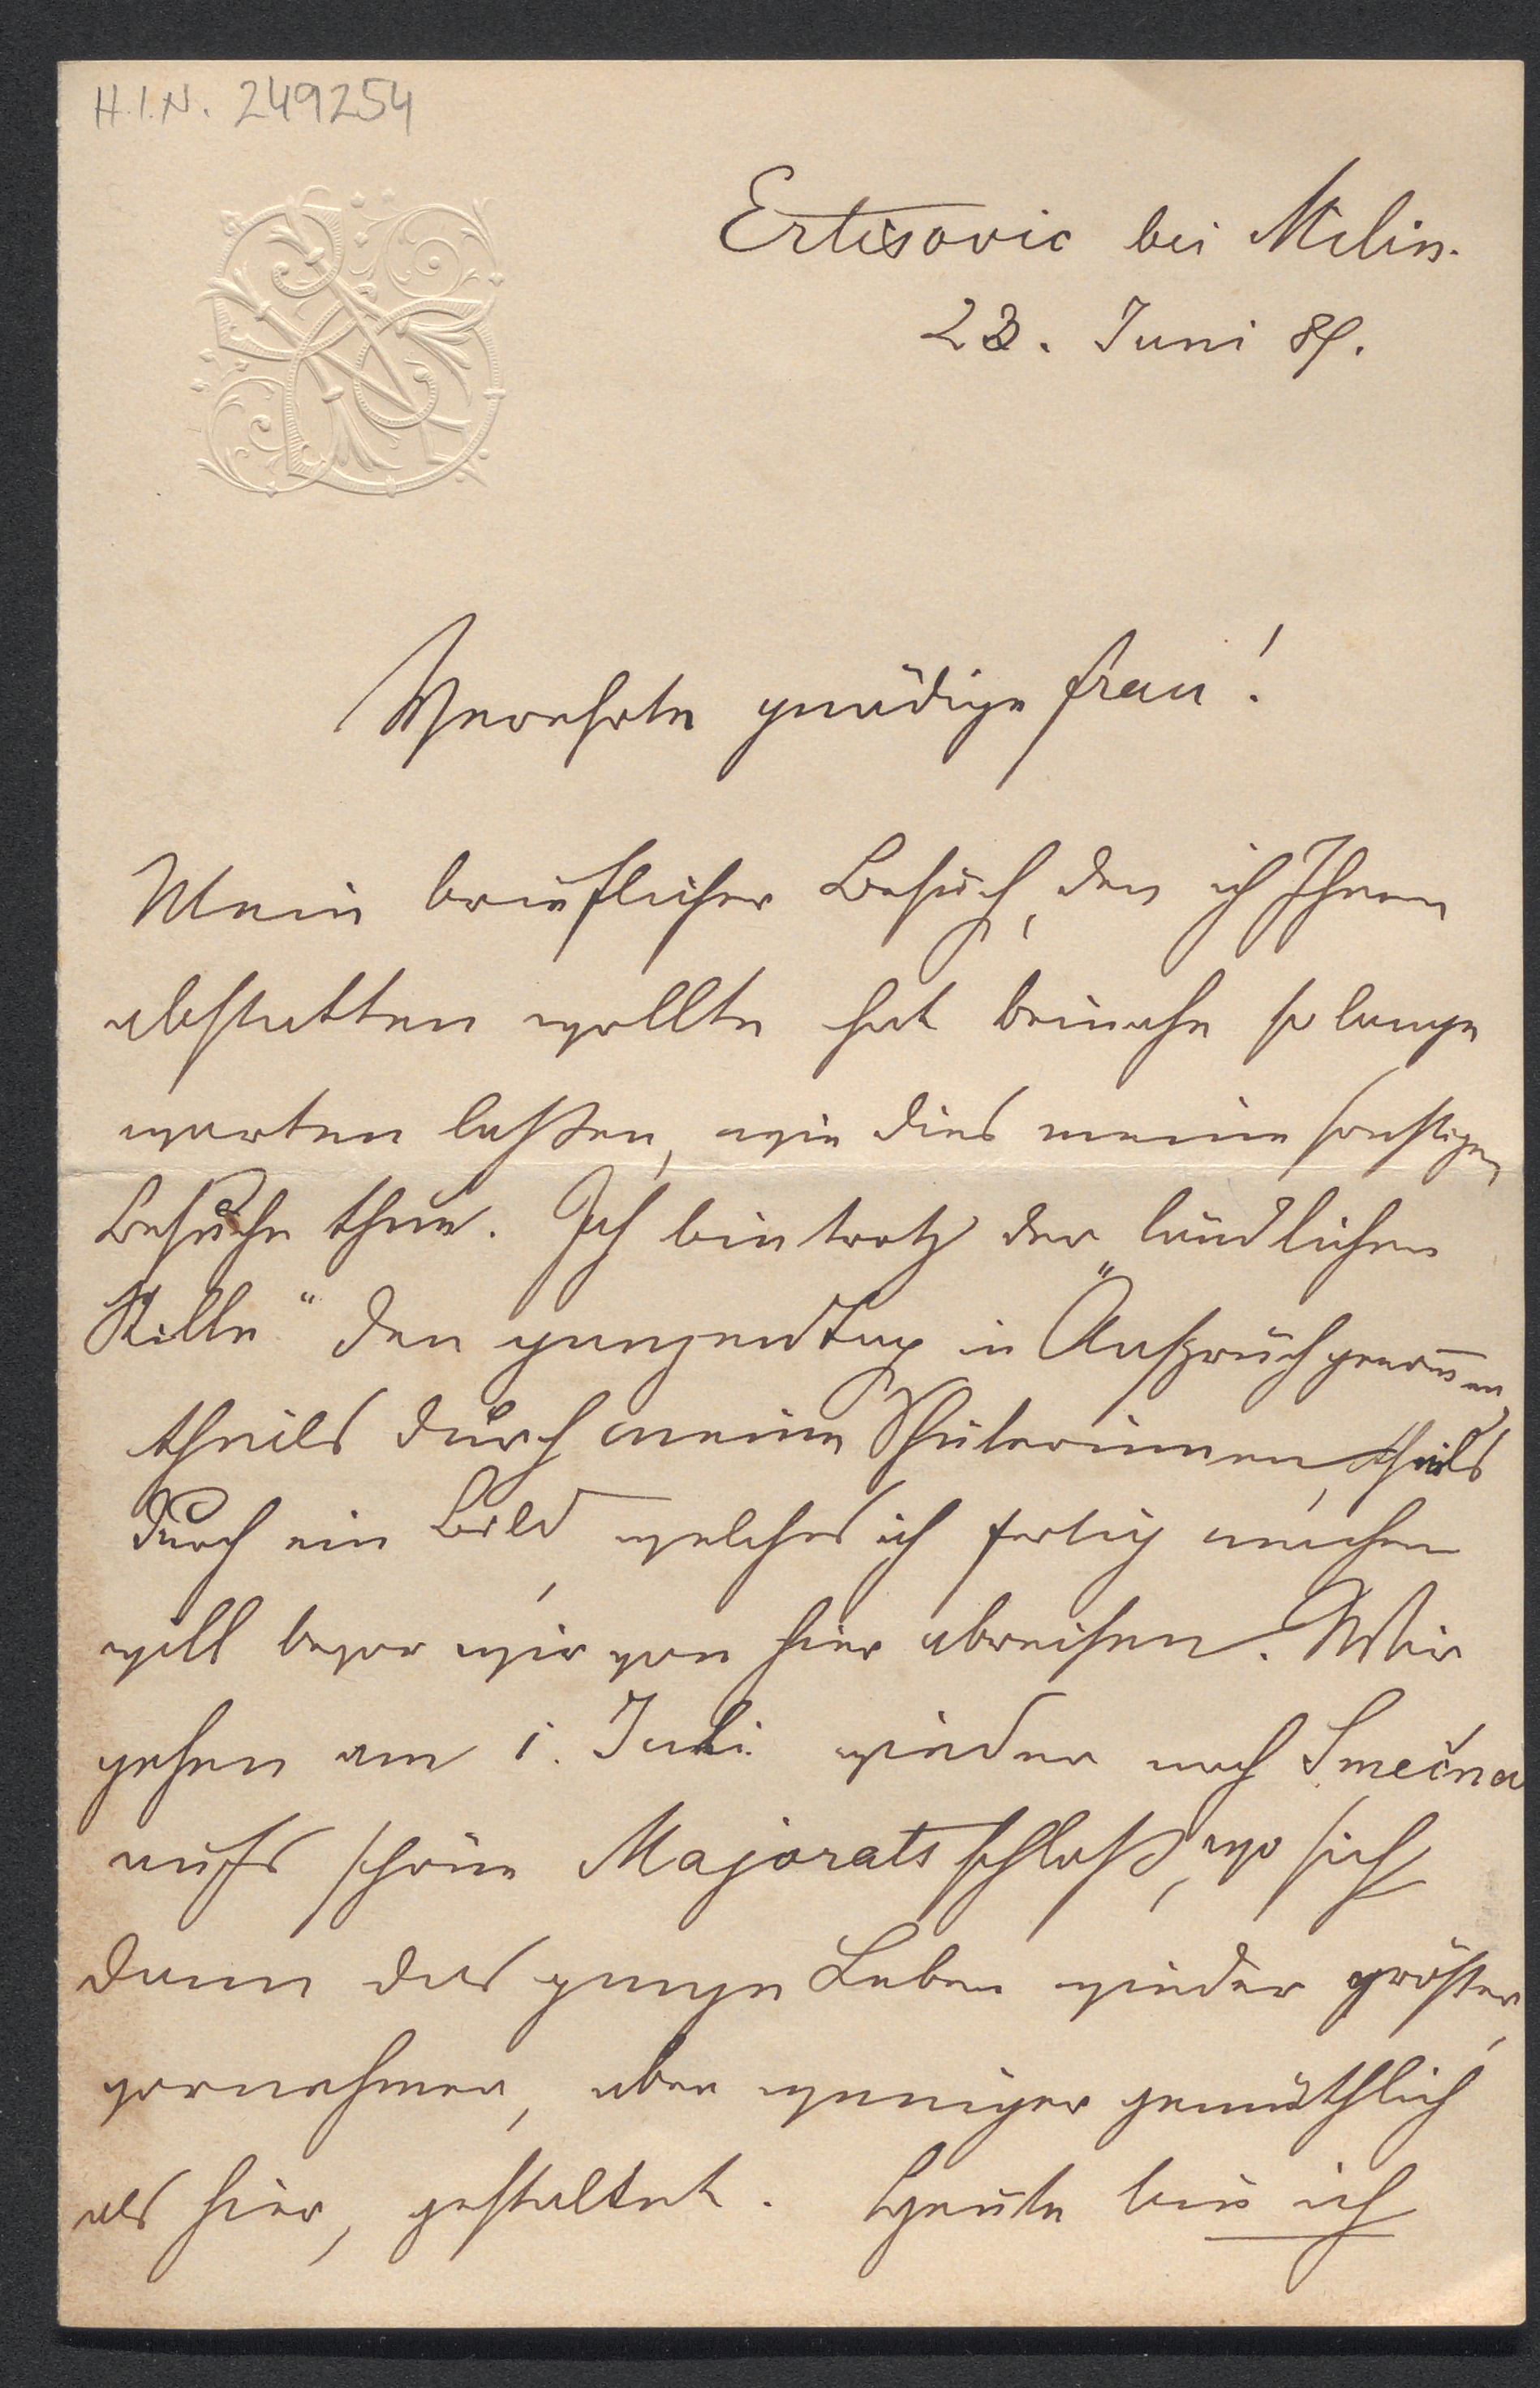 H.I.N. 249254
Ertisovic bei Milin.
23. Juni 89.
Verehrte gnädige Frau!
Mein brieflicher Besuch, den ich Ihnen
abstatten wollte hat beinahe so lange
warten laßen, wie dies meine sonstigen
Besuche thun. Ich bin trotz der „ländlichen
Stille“ den ganzen Tag in Anspruch genom̅en,
theils durch meine Schülerinnen, theils
durch ein Bild, welches ich fertig machen
will bevor wir von hier abreisen. Wir
gehen am 1. Juli wieder nach Smečna
aufs schöne Majoratsschloß, wo sich
dann das ganze Leben wieder größer,
vornehmer, aber weniger gemüthlich
als hier, gestaltet. Heute bin ich